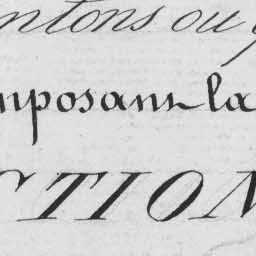 ntons ou
mposant la
CTION